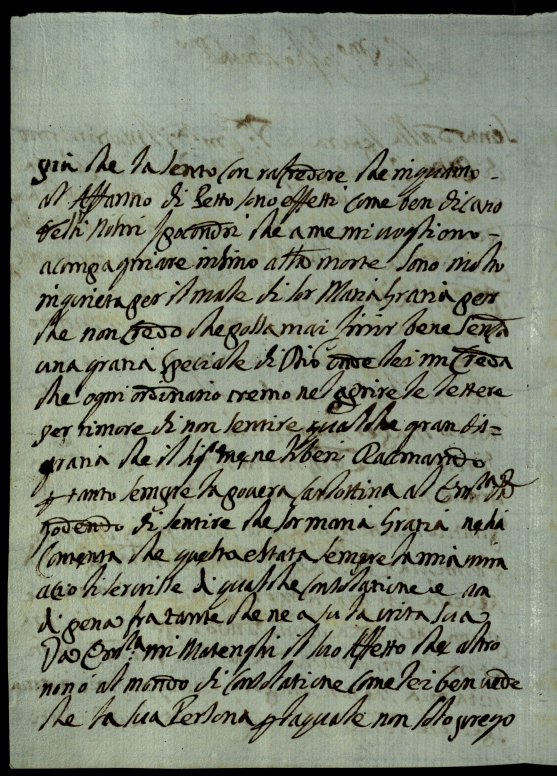 più che la sento con rafredore che inquanto
al Affanno di Petto sono effetti come ben dicano
testi Nostri che a me mi vogliono
acompagniare infino alla morte sono molto
inquieta per il male di Sor Maria Grazia per
che non Credo che possa mai finir bene senza
una grazia speciale di Dio onde lei mi Creda
che ogni ordinario tremo nel aprire le lettere
per timore di non sentire qualche gran dis=
grazia che il Sig.re me ne liberi Racmando
p tanto sempre la povera Carlottina al
godendo di sentire che Sor maria Grazia ne sia
Contenta che questa e stata sempre la mia mira
acio li servisse di qualche Consolatione e
di pena fra tante che ne a su la vita sua
Da mi Matenghi il suo Affetto che altro
non o al mondo di Consolatione come lei ben vede
che la sua Persona p la quale non solo prego